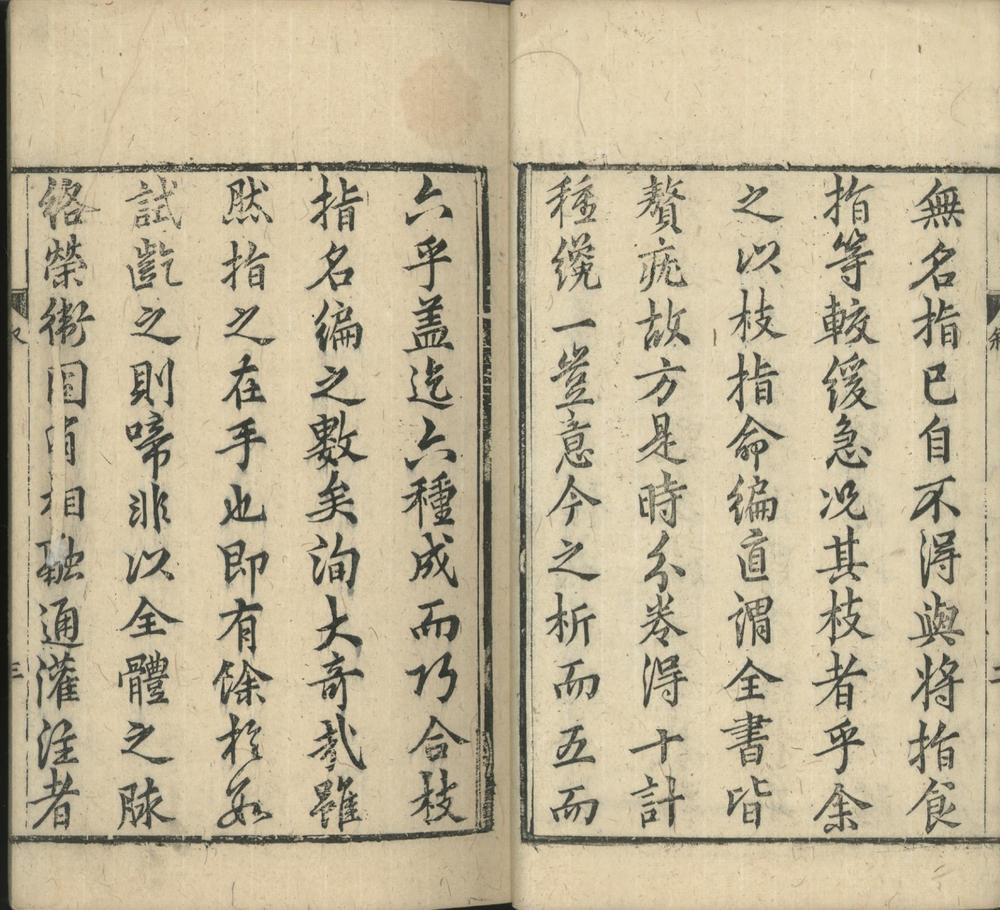 無名指已自不得與將指食
指等較緩急况其枝者乎余
之以枝指命編直謂全書皆
贅疣故方是時分卷得十計
種纔一豈意今之析而五而
六乎蓋迄六種成而巧合枝
指名編之數矣洵大奇哉雖
然指之在手也即有餘於
試齕之則啼非以全體之脉
絡榮衛固有相融通灌注者